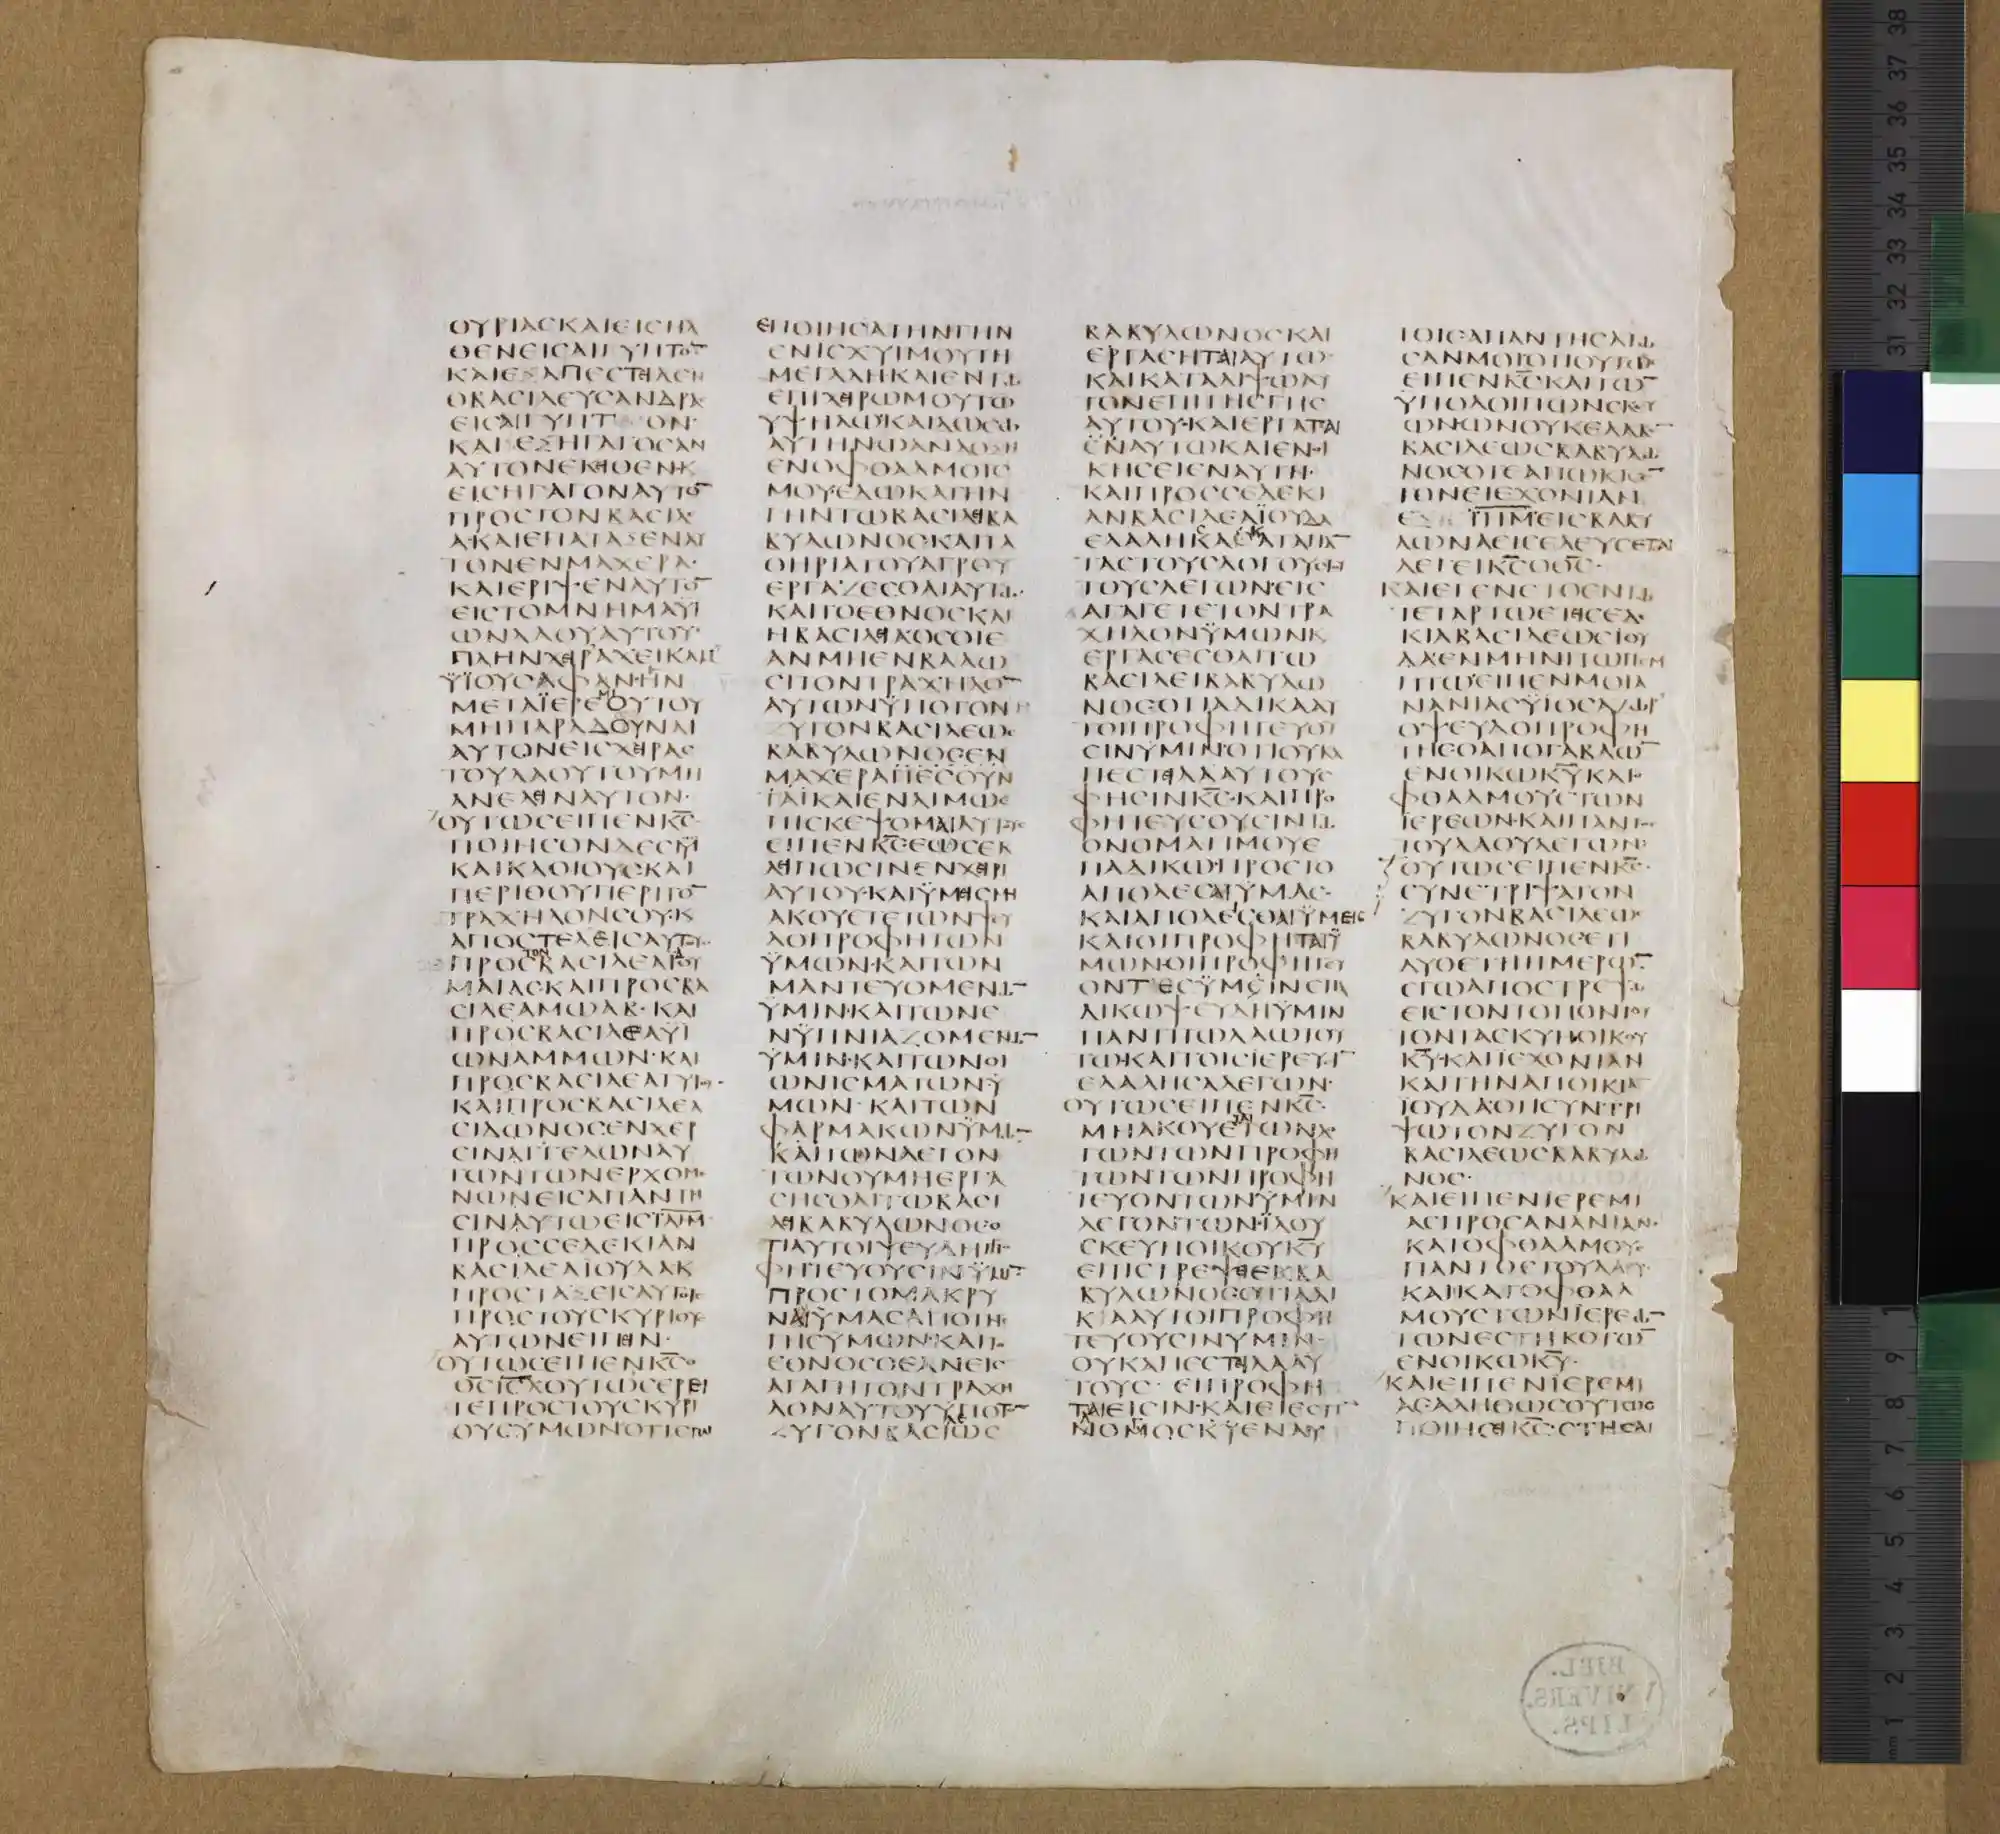 ΟΥΡΙΑСΚΑΙΕΙСΗΛ
ΘΕΝΕΙСΑΙΓΥΠΤΟ̅
ΚΑΙΕΞΑΠΕСΤΙΛΕΝ
ΟΒΑСΙΛΕΥСΑΝΔΡΑ
ΕΙСΑΙΓΥΠΤΟΝ·
ΚΑΙΕΞΗΓΑΓΟСΑΝ
ΑΥΤΟΝΕΚΙΘΕΝΚ
ΕΙСΗΓΑΓΟΝΑΥΤΟ̅
ΠΡΟСΤΟΝΒΑСΙΛΕ
Α·ΚΑΙΕΠΑΤΑΞΕΝΑΥ
ΤΟΝΕΝΜΑΧΕΡΑ·
ΚΑΙΕΡΙΨΕΝΑΥΤΟ̅
ΕΙСΤΟΜΝΗΜΑΫΙ
ΩΝΛΑΟΥΑΥΤΟΥ·
ΠΛΗΝΧΕΙΡΑΧΕΙΚΑΜ
ΫΪΟΥСΑΦΑΝ·ΗΝ
ΜΕΤΑΪΕΡΕΜΙΟΥΤΟΥ
ΜΗΠΑΡΑΔΟΥΝΑΙ
ΑΥΤΟΝΕΙСΧΕΙΡΑС
ΤΟΥΛΑΟΥΤΟΥΜΗ
ΑΝΕΛΕΙΝΑΥΤΟΝ·
ΟΥΤΩСΕΙΠΕΝΚ̅С̅
ΠΟΙΗСΟΝΔΕСΜ
ΚΑΙΚΛΟΙΟΥС·ΚΑΙ
ΠΕΡΙΘΟΥΠΕΡΙΤΟ̅
ΤΡΑΧΗΛΟΝСΟΥ·Κ
ΑΠΟСΤΕΛΕΙСΑΥΤΟΥ
ΠΡΟСΤΟΝΒΑСΙΛΕΑΪΔΟΥ
ΜΑΙΑС·ΚΑΙΠΡΟСΒΑ
СΙΛΕΑΜΩΑΒ·ΚΑΙ
ΠΡΟСΒΑСΙΛΕΑΫΙ
ΩΝΑΜΜΩΝ·ΚΑΙ
ΠΡΟСΒΑСΙΛΕΑΤΥΡΟΥ·
ΚΑΙΠΡΟСΒΑСΙΛΕΑ
СΙΔΩΝΟСΕΝΧΕΡ
СΙΝΑΓΓΕΛΩΝΑΥ
ΤΩΝΤΩΝΕΡΧΟΜΕ
ΝΩΝΕΙСΑΠΑΝΤΗ
СΙΝΑΥΤΩΕΙСΪ̅Λ̅Η̅Μ̅
ΠΡΟССΕΔΕΚΙΑΝ
ΒΑСΙΛΕΑΪΟΥΔΑΚ
ΠΡΟСΤΑΞΕΙСΑΥΤΟΙС
ΠΡΟСΤΟΥСΚΥΡΙΟΥС
ΑΥΤΩΝΕΙΠΕΙΝ·
ΟΥΤΩСΕΙΠΕΝΚ̅С̅Ο
Θ̅С̅Ι̅С̅Λ̅ΟΥΤΩСΕΡΕΙ
ΤΕΠΡΟСΤΟΥСΚΥΡΙ
ΟΥСΫΜΩΝΟΤΙΕΓΩ
ΕΠΟΙΗСΑΤΗΝΓΗΝ
ΕΝΙСΧΥΙΜΟΥΤΗ
ΜΕΓΑΛΗΚΑΙΕΝΤΩ
ΕΠΙΧΕΙΡΩΜΟΥΤΩ
ΥΨΗΛΩΚΑΙΔΩСΩ
ΑΥΤΗΝΩΑΝΔΟΞΗ
ΕΝΟΦΘΑΛΜΟΙС
ΜΟΥ·ΕΔΩΚΑΤΗΝ
ΓΗΝΤΩΒΑСΙΛΕΙΒΑ
ΒΥΛΩΝΟС·ΚΑΙΤΑ
ΘΗΡΙΑΤΟΥΑΓΡΟΥ
ΕΡΓΑΖΕСΘΑΙΑΥΤΩ·
ΚΑΙΤΟΕΘΝΟСΚΑΙ
ΗΒΑСΙΛΕΙΑΟСΟΙΕ
ΑΝΜΗΕΝΒΑΛΩ
СΙΤΟΝΤΡΑΧΗΛΟ̅
ΑΥΤΩΝΫΠΟΤΟΝ
ΖΥΓΟΝΒΑСΙΛΕΩС
ΒΑΒΥΛΩΝΟСΕΝ
ΜΑΧΕΡΑΠΕСΟΥΝ
ΤΑΙΚΑΙΕΝΛΙΜΩΕ
ΠΙСΚΕΨΟΜΑΙΑΥΤΟΥС
ΕΙΠΕΝΚ̅С̅ΕΩСΕΚ
ΛΕΙΠΩСΙΝΕΝΧΕΙΡΙ
ΑΥΤΟΥ·ΚΑΙΫΜΕΙСΜΗ
ΑΚΟΥΕΤΕΤΩΝΨΕΥ
ΔΟΠΡΟΦΗΤΩΝ
ΫΜΩΝ·ΚΑΙΤΩΝ
ΜΑΝΤΕΥΟΜΕΝΩ̅
ΫΜΙΝ·ΚΑΙΤΩΝΕ
ΝΫΠΝΙΑΖΟΜΕΝΩ̅
ΫΜΙΝ·ΚΑΙΤΩΝΟΙ
ΩΝΙСΜΑΤΩΝΫ
ΜΩΝ·ΚΑΙΤΩΝ
ΦΑΡΜΑΚΩΝΫΜΩ̅
ΚΑΙΤΩΝΛΕΓΟΝ
ΤΩΝΟΥΜΗΕΡΓΑ
СΗСΘΑΙΤΩΒΑСΙ
ΛΕΙΒΑΒΥΛΩΝΟСΟ
ΤΙΑΥΤΟΙΨΕΥΔΗΠΡΟ
ΦΗΤΕΥΟΥСΙΝΫΜΙ̅
ΠΡΟСΤΟΜΑΚΡΥ
ΝΑΙΫΜΑСΑΠΟΤΗС
ΓΗСΫΜΩΝ·ΚΑΙΤΟ
ΕΘΝΟСΟΕΑΝΕΙС
ΑΓΑΓΗΤΟΝΤΡΑΧΗ
ΛΟΝΑΥΤΟΥΫΠΟΤΟ̅
ΖΥΓΟΝΒΑСΙΛΕΩС
ΒΑΒΥΛΩΝΟСΚΑΙ
ΕΡΓΑСΗΤΑΙΑΥΤΩ
ΚΑΙΚΑΤΑΛΙΨΩΑΥ
ΤΟΝΕΠΙΤΗСΓΗС
ΑΥΤΟΥ·ΚΑΙΕΡΓΑΤΑΙ
ΕΝΑΥΤΩΚΑΙΕΝΟΙ
ΚΗСΕΙΕΝΑΥΤΗ·
ΚΑΙΠΡΟССΕΔΕΚΙ
ΑΝΒΑСΙΛΕΑΪΟΥΔΑ
ΕΛΑΛΗСΑΚΑΤΑΠΑ̅
ΤΑСΤΟΥСΛΟΓΟΥС
ΤΟΥСΛΕΓΩΝ·ΕΙС
ΑΓΑΓΕΤΕΤΟΝΤΡΑ
ΧΗΛΟΝΫΜΩΝΚ
ΕΡΓΑСΕСΘΑΙΤΩ
ΒΑСΙΛΕΙΒΑΒΥΛΩ
ΝΟСΟΤΙΑΔΙΚΑΑΥ
ΤΟΙΠΡΟΦΗΤΕΥΟΥ
СΙΝΫΜΙΝΟΤΙΟΥΚΑ
ΠΕСΤΙΛΑΑΥΤΟΥС
ΦΗСΙΝΚ̅С̅·ΚΑΙΠΡΟ
ΦΗΤΕΥСΟΥСΙΝΤΩ
ΟΝΟΜΑΤΙΜΟΥΕ
ΠΑΔΙΚΩΠΡΟСΤΟ
ΑΠΟΛΕСΑΙΫΜΑС·
ΚΑΙΑΠΟΛΕСΘΑΙΫΜΕΙС
ΚΑΙΟΙΠΡΟΦΗΤΑΙΫ
ΜΩΝΟΙΠΡΟΦΗΤΕΥ
ΟΝΤΕСΫΜΙΝΕΠΑ
ΔΙΚΩΨΕΥΔΗΫΜΙΝ
ΠΑΝΤΙΤΩΛΑΩΤΟΥ
ΤΩ·ΚΑΙΤΟΙСΪΕΡΕΥСΙ̅
ΕΛΑΛΗСΑΛΕΓΩΝ·
ΟΥΤΩСΕΙΠΕΝΚ̅С̅·
ΜΗΑΚΟΥΕΤΑΙΤΩΝΛ
ΓΩΝΤΩΝΠΡΟΦΗ
ΤΩΝΤΩΝΠΡΟΦΗ
ΤΕΥΟΝΤΩΝΫΜΙΝ
ΛΕΓΟΝΤΩΝ·ΪΔΟΥ
СΚΕΥΗΟΙΚΟΥΚ̅Υ̅
ΕΠΙСΤΡΕΨΕΙΕΚΒΑ
ΒΥΛΩΝΟСΟΤΙΑΔΙ
ΚΑΑΥΤΟΙΠΡΟΦΗ
ΤΕΥΟΥСΙΝΫΜΙΝ·
ΟΥΚΑΠΕСΤΙΛΑΑΥ
ΤΟΥС·ΕΙΠΡΟΦΗ
ΤΑΙΕΙСΙΝ·ΚΑΙΕΙΕСΤΙ̅
ΛΟΓΟСΚ̅Υ̅ΕΝΑΥ
ΤΟΙСΑΠΑΝΤΗСΑΤΩ
СΑΝΜΟΙΟΤΙΟΥΤΩС
ΕΙΠΕΝΚ̅С̅ΚΑΙΤΩ̅
ΫΠΟΛΟΙΠΩΝСΚΕΥ
ΩΝΩΝΟΥΚΕΛΑΒΕ̅
ΒΑСΙΛΕΩСΒΑΒΥΛΩ
ΝΟСΟΤΕΑΠΩΚΙСΕ̅
ΤΟΝΕΙΕΧΟΝΙΑΝ
ΕΞ Ϊ̅Λ̅Η̅Μ̅ΕΙСΒΑΒΥ
ΛΩΝΑΕΙСΕΛΕΥСΕΤΑΙ
ΛΕΓΕΙΚ̅С̅ΟΘ̅С̅·
ΚΑΙΕΓΕΝΕΤΟΕΝΤΩ
ΤΕΤΑΡΤΩΕΤΕΙСΕΔΕ
ΚΙΑΒΑСΙΛΕΩСΪΟΥ
ΔΑΕΝΜΗΝΙΤΩΠΕΜ
ΠΤΩΕΙΠΕΝΜΟΙΑ
ΝΑΝΙΑСΫΙΟСΑΖΩΡ
ΟΨΕΥΔΟΠΡΟΦΗ
ΤΗСΟΑΠΟΓΑΒΑΩ̅
ΕΝΟΙΚΩΚ̅Υ̅ΚΑΤΟ
ΦΘΑΛΜΟΥСΤΩΝ
ΪΕΡΕΩΝ·ΚΑΙΠΑΝΤΟС
ΤΟΥΛΑΟΥΛΕΓΩΝ·
ΟΥΤΩСΕΙΠΕΝΚ̅С̅·
СΥΝΕΤΡΙΨΑΤΟΝ
ΖΥΓΟΝΒΑСΙΛΕΩС
ΒΑΒΥΛΩΝΟСΕΤΙ
ΔΥΟΕΤΗΗΜΕΡΩ̅
ΕΓΩΑΠΟСΤΡΕΨΩ
ΕΙСΤΟΝΤΟΠΟΝΤΟΥ
ΤΟΝΤΑСΚΥΗΟΙΚΟΥ
Κ̅Υ̅·ΚΑΙΪΕΧΟΝΙΑΝ
ΚΑΙΤΗΝΑΠΟΙΚΙΑ̅
ΪΟΥΔΑΟΤΙСΥΝΤΡΙ
ΨΩΤΟΝΖΥΓΟΝ
ΒΑСΙΛΕΩСΒΑΒΥΛΩ
ΝΟС·
ΚΑΙΕΙΠΕΝΪΕΡΕΜΙ
ΑСΠΡΟСΑΝΑΝΙΑΝ·
ΚΑΤΟΦΘΑΛΜΟΥС
ΠΑΝΤΟСΤΟΥΛΑΟΥ·
ΚΑΙΚΑΤΟΦΘΑΛ
ΜΟΥСΤΩΝΪΕΡΕΩ̅
ΤΩΝΕСΤΗΚΟΤΩ̅
ΕΝΟΙΚΩΚ̅Υ̅·
ΚΑΙΕΙΠΕΝΪΕΡΕΜΙ
ΑСΑΛΗΘΩСΟΥΤΩС
ΠΟΙΗСΕΙΚ̅С̅·СΤΗСΑΙ
BIBL.
VNIVERS.
LIPS.